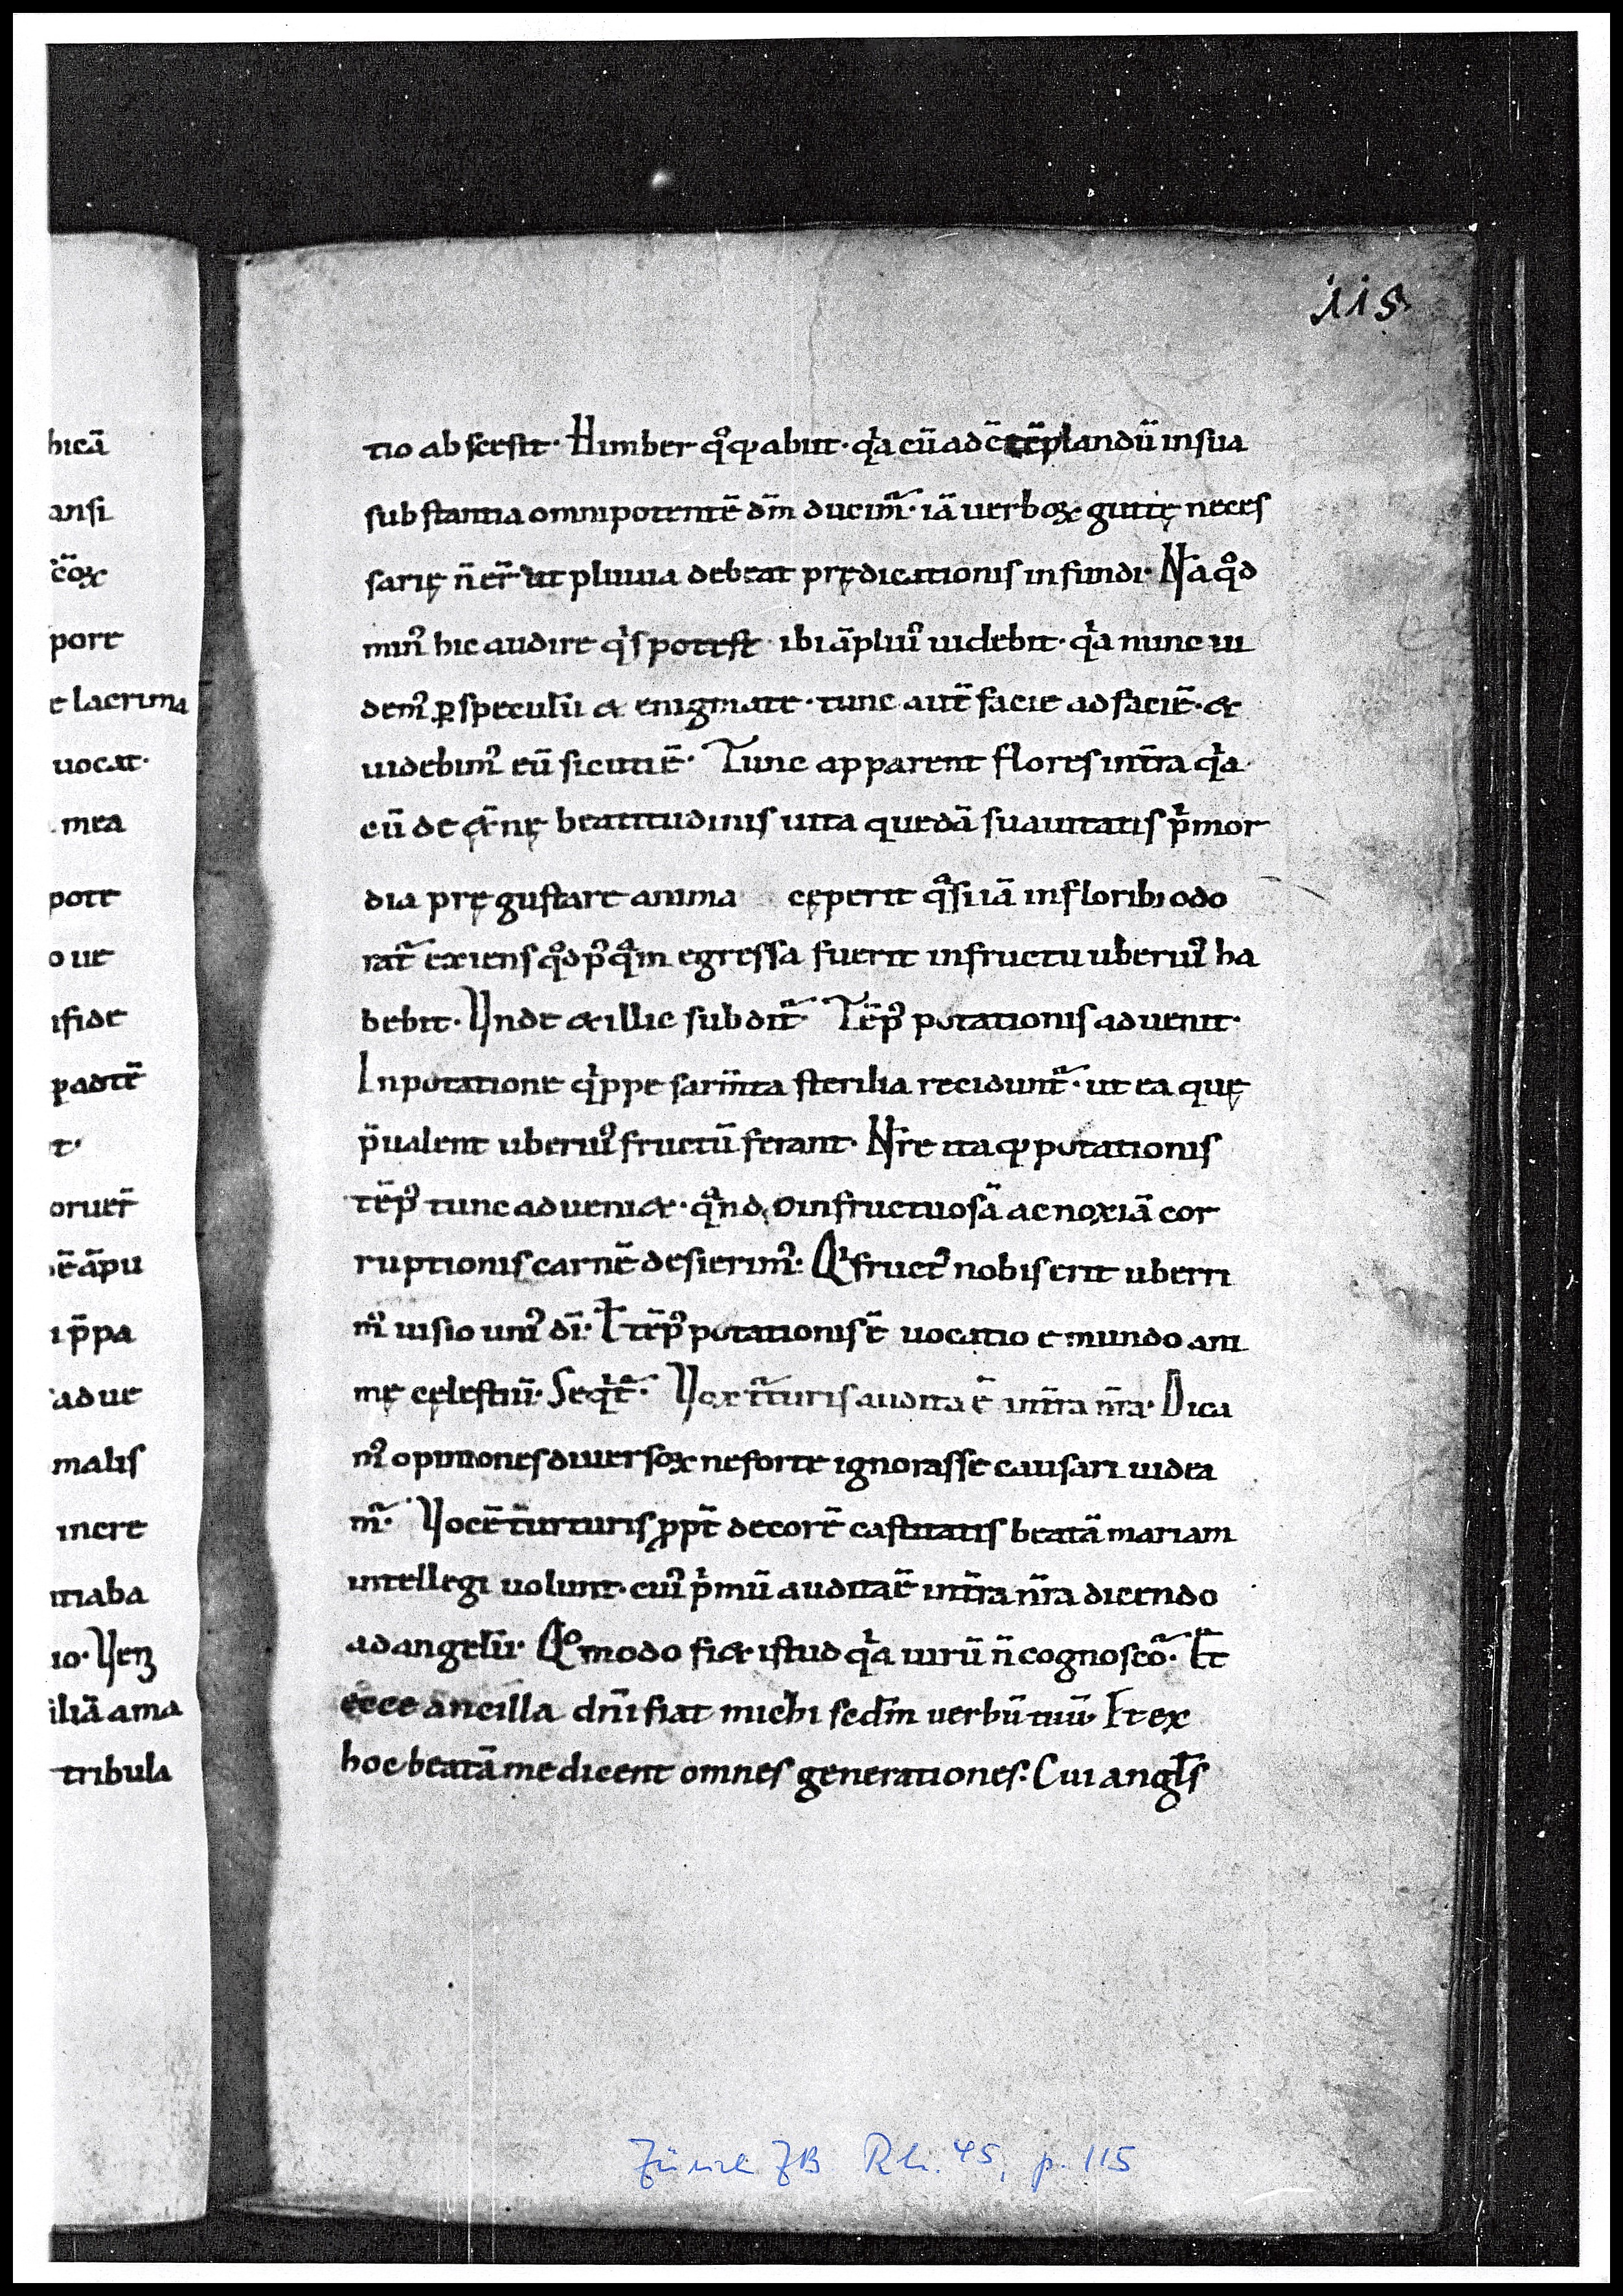 115
hicā
ansi
c̄oꝝ
pore
e lacrima
uocat·
mea
pote
o ue
ifide
padtē
t·
oruer̄
ēāpu
i p̄pa
adue
malis
incre
ntiaba
io· Ueŋ
iliā ama
tribula
tio abscesit· Himber qͦꝙ abiit· qͥa cū ad c̄tēplandū insua
substantia omnipotentē dm̄ ducim᷑· iā uerboꝝ guttę neces
sarię n̄ er̄ ut pluuia debeat prędicationis infundi· Nā qͦd
minꝰ hic audire qͥs potest ibi āpliuꝰ uidebit· qͥa nunc ui
demꝰ ꝑ speculū & enigmate· tunc autē facie ad faciē· &
uidebimꝰ eū sicuti ē· Tunc apparent flores int̄ra qͥa
cū de ęt̄nę beatitudinis uita quedā suauitatis pͥmor
dia pręgustare anima cęperit qͣsi iā in floribꝫ odo
rat᷑ exiens qͦd pꝰqͣm egressa fuerit infructu uberiuꝰ ha
bebit· Unde & illic subdit᷑ Tēpꝰ putationis aduenit·
Inputatione qͥppe sarm̄ta sterilia recidunt᷑· ut ea quę
p̄ualent uberiuꝰ fructū ferant· Nr̄e itaꝙ putationis
tēpꝰ tunc adueni&· qͣndo infructuosā ac noxiā cor
ruptionis carnē desierimꝰ· Qͥ fructꝰ nobis erit uberri
mꝰ uisio uniꝰ dī· It̄ tēpꝰ putationis ē uocatio e mundo ani
mę cęlestiū· Seqͥt᷑· Uox t᷑turis audita ē int̄ra nr̄a· Dica
mꝰ opiniones diuersoꝝ ne forte ignorasse causari uidea
m᷑· Uocē turturis ꝓpt̄ decorē castitatis beatā mariam
intellegi uolunt· cuiꝰ pͥmū audita ē int̄ra nr̄a dicendo
ad angelū· Qͦmodo fi& istud qͥa uirū n̄ cognosco᷑· Et̄
ecce ancilla dn̄i fiat michi scdm̄ uerbū tuū· Et ex
hoc beatā me dicent omnes generationes· Cui angl̄s
Zürich ZB Rh. 45, p. 115